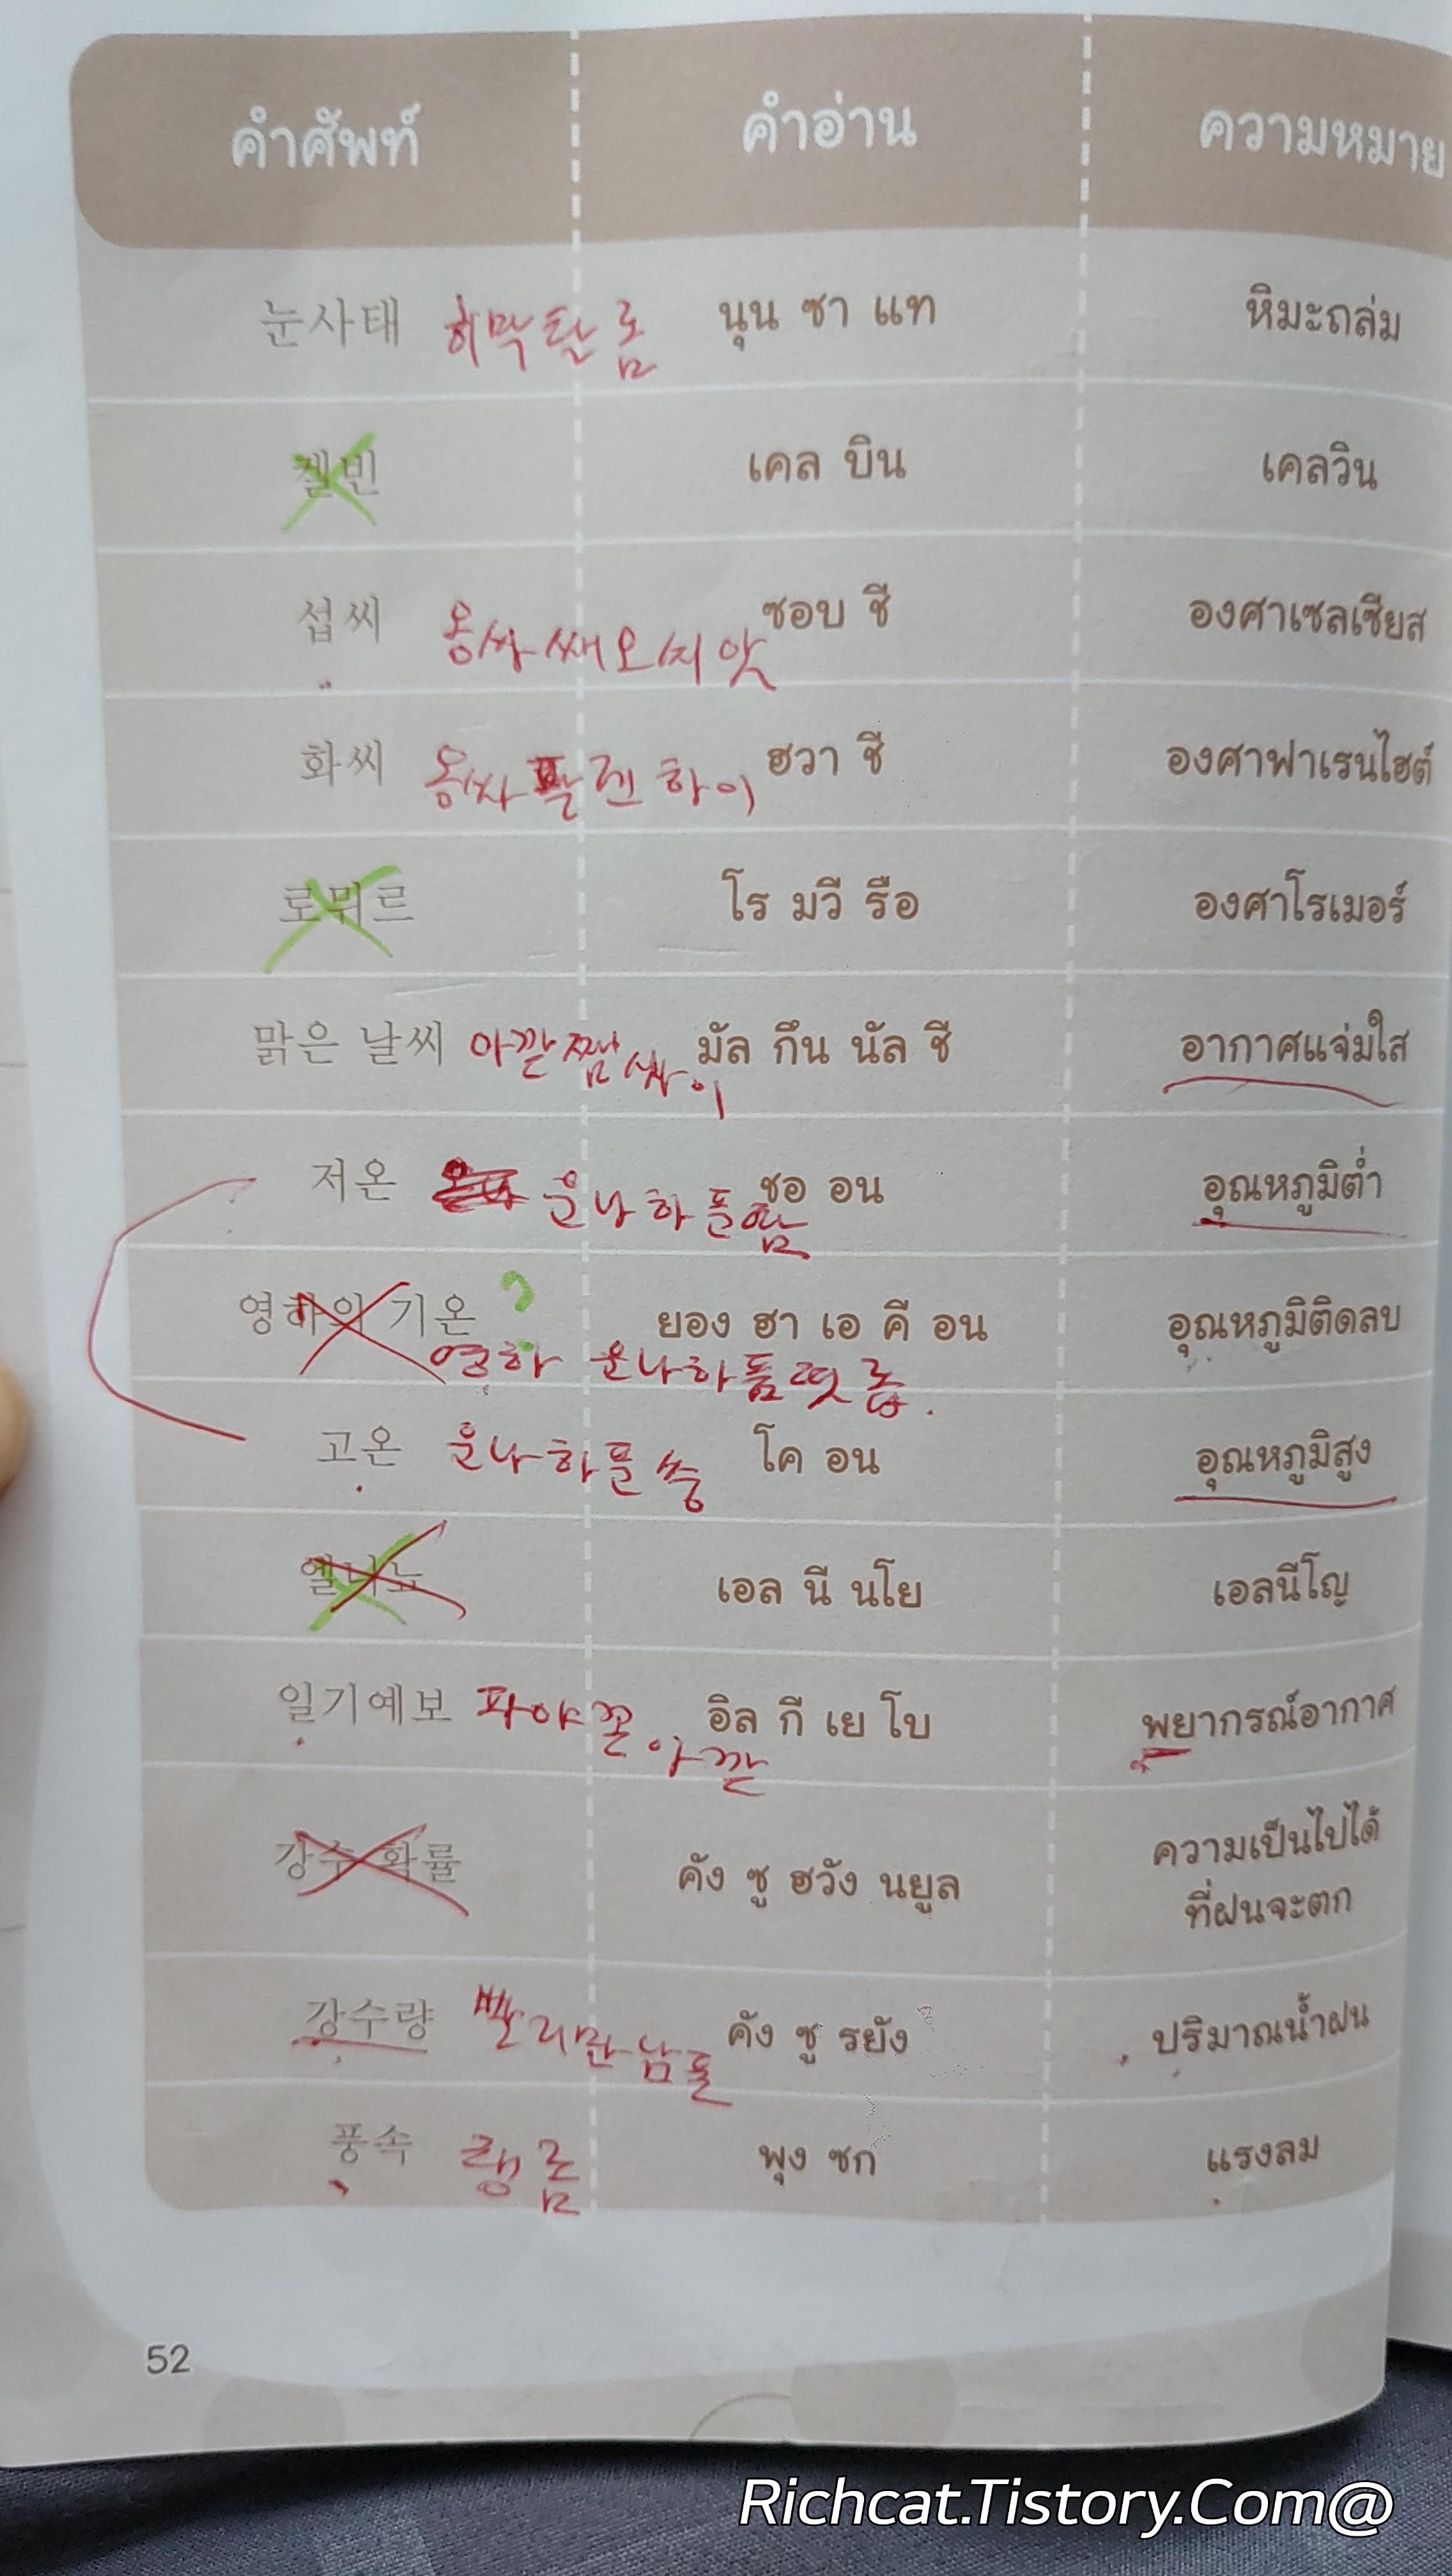 คำศัพท์ คำอ่าน ความหมาย
눈사태 히막탈롬 นุน ซา แท หิมะถล่ม
켈빈 เคล บิน เคลวิน
섭씨 옹싸쎄오씨앗 ซอบ ชี องศาเซลเซียส
화씨 옹싸팔렌하이 ฮวา ชี องศาฟาเรนไฮต์
로뮈르 โร มวี รือ องศาโรเมอร์
맑은 날씨 아깓쨈싸이 มัล กึน นัล ชี อากาศแจ่มใส
저온 운나하품땀 ชอ อน อุณหภูมิต่ำ
영하의 기온 ? ยอง ฮา เอ คี อน อุณหภูมิติดลบ
영하 운나하품띳롭.
고온 운나하품쑹 โค อน อุณหภูมิสูง
엘니뇨 เอล นี นโย เอลนีโญ
일기예보 파야꼰아깓 อิล กี เย โบ พยากรณ์อากาศ
강수 확률 คัง ซู ฮวัง นยูล ความเป็นไปได้
ที่ฝนจะตก
강수량 빨리만남폰 คัง ซู รยัง ปริมาณน้ำฝน
풍속 랭롬 พุง ซก แรงลม
52
Richcat.Tistory.Com@